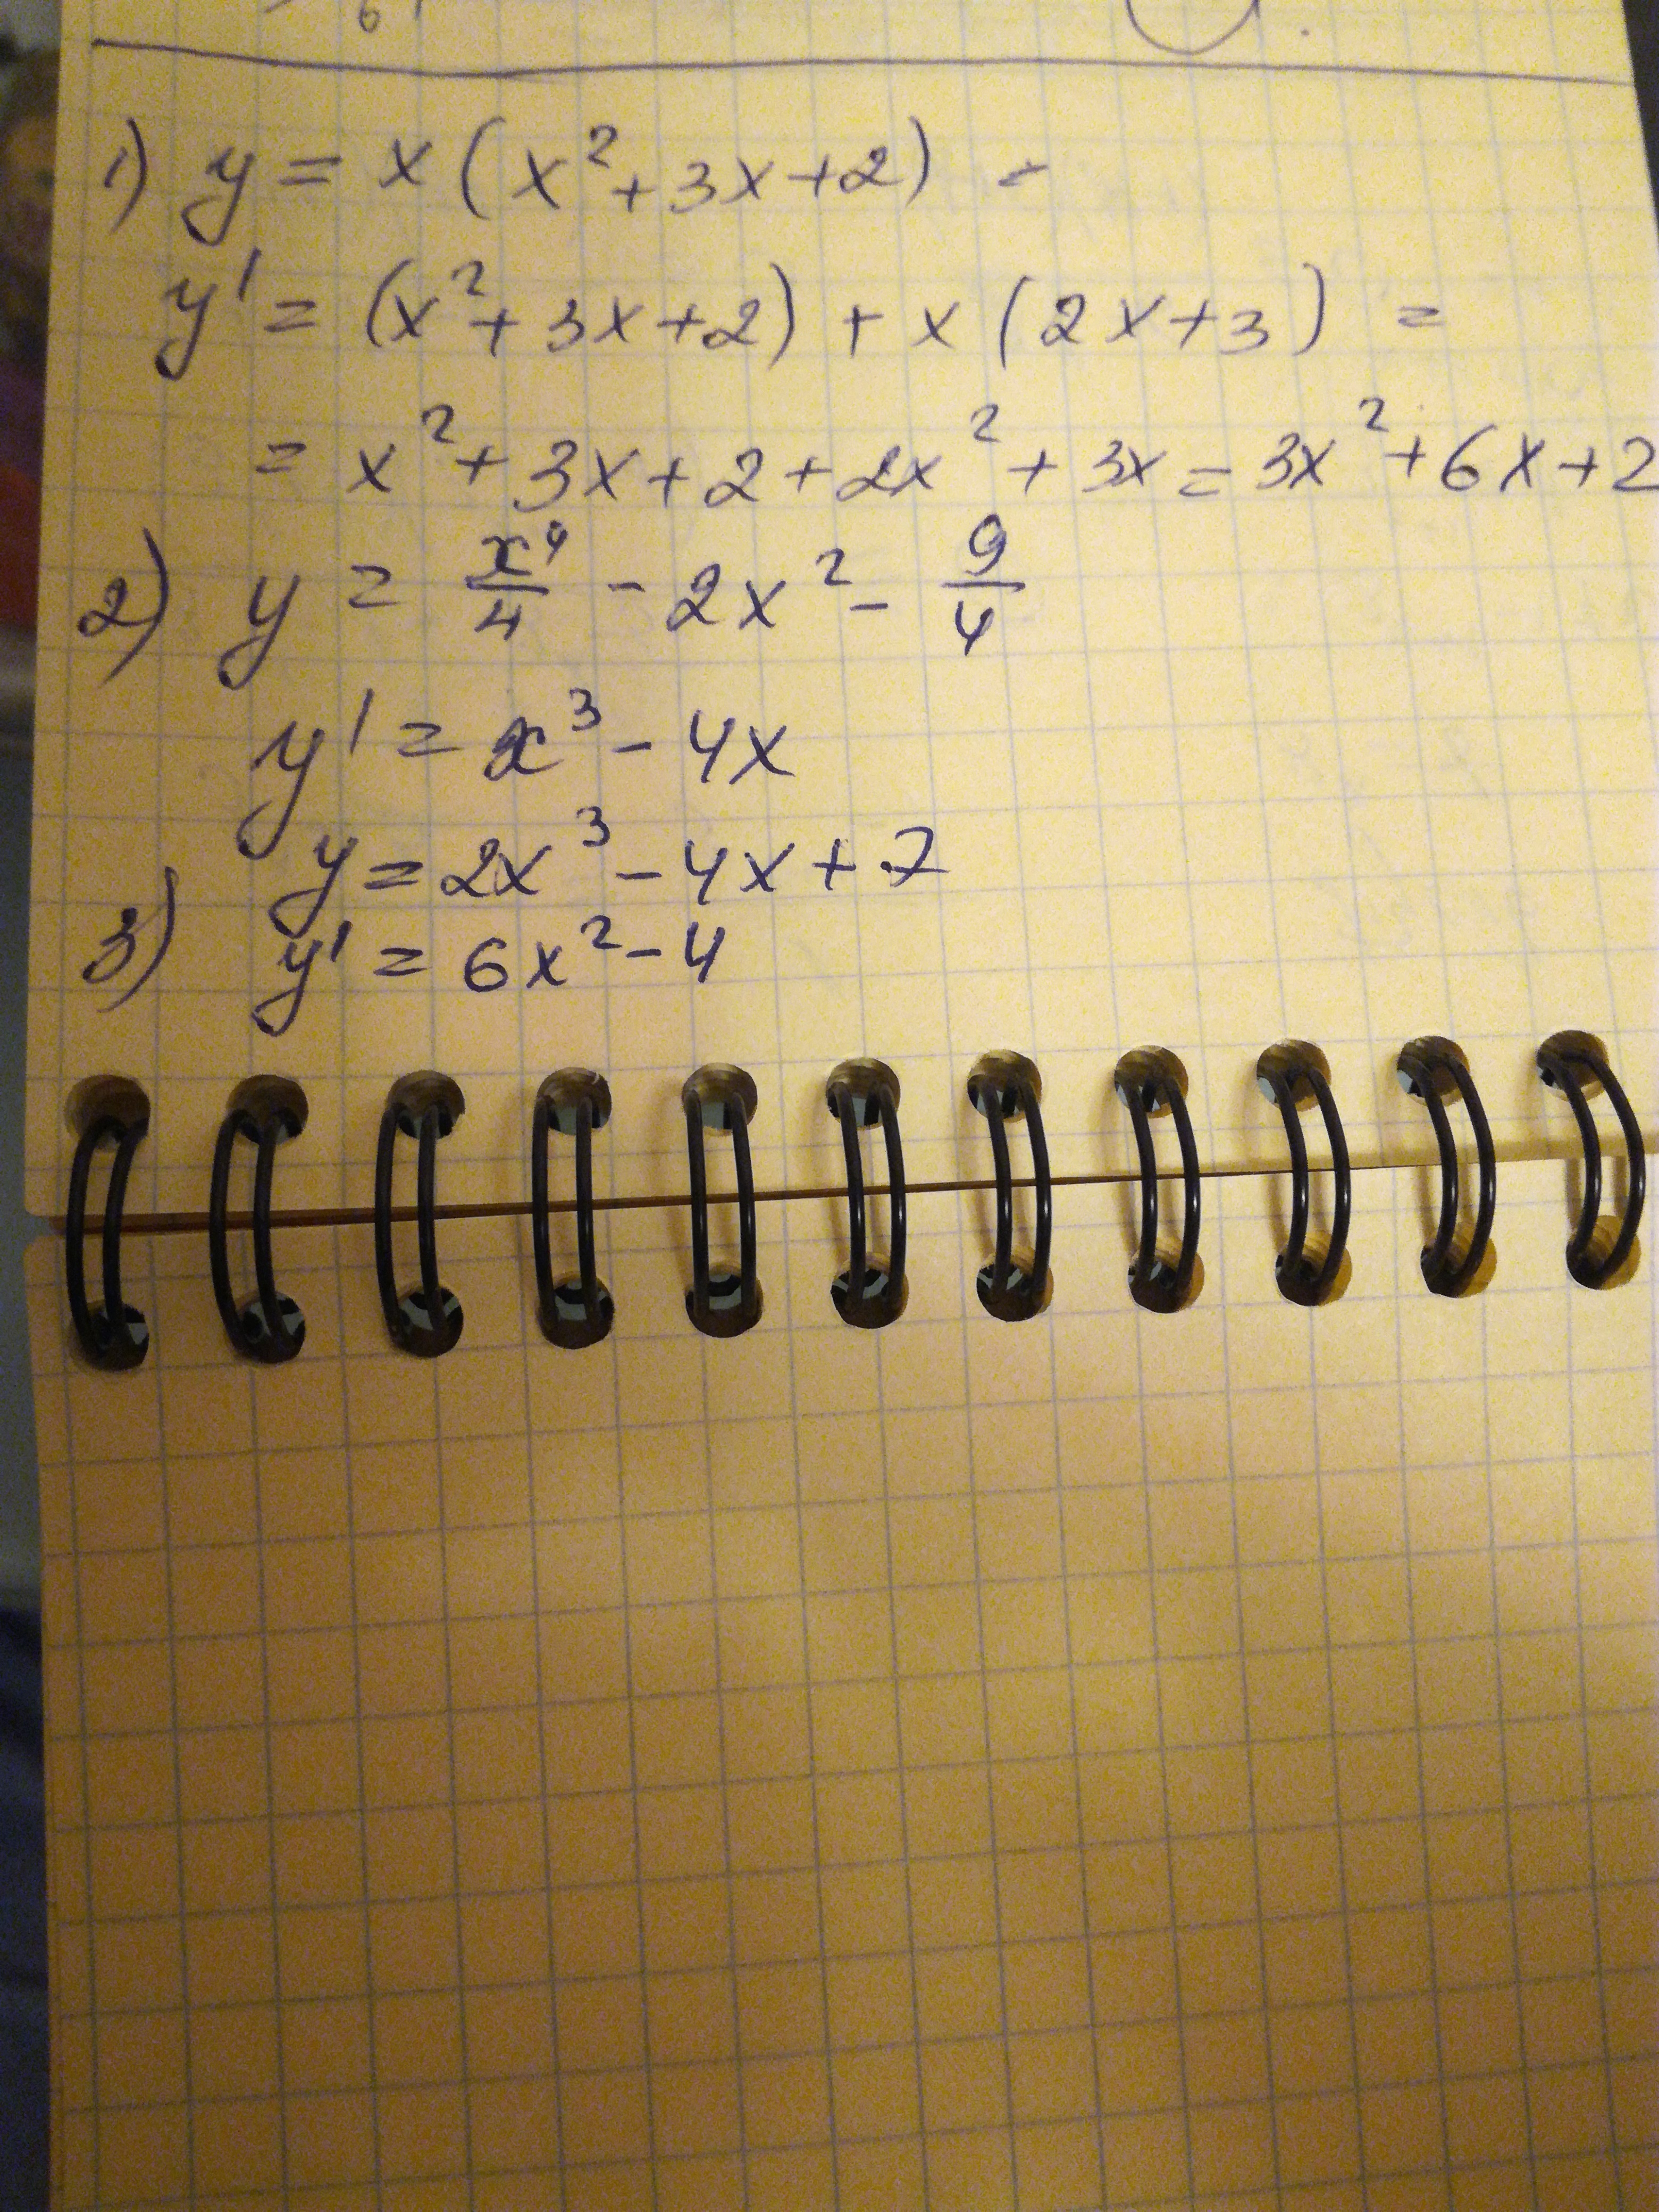 6
1) y = x (x² + 3x + 2) =
y' = (x² + 3x + 2) + x (2x + 3) =
= x² + 3x + 2 + 2x² + 3x = 3x² + 6x + 2
2) y = x⁴/4 - 2x² - 9/4
y' = x³ - 4x
y = 2x³ - 4x + 7
3) y' = 6x² - 4